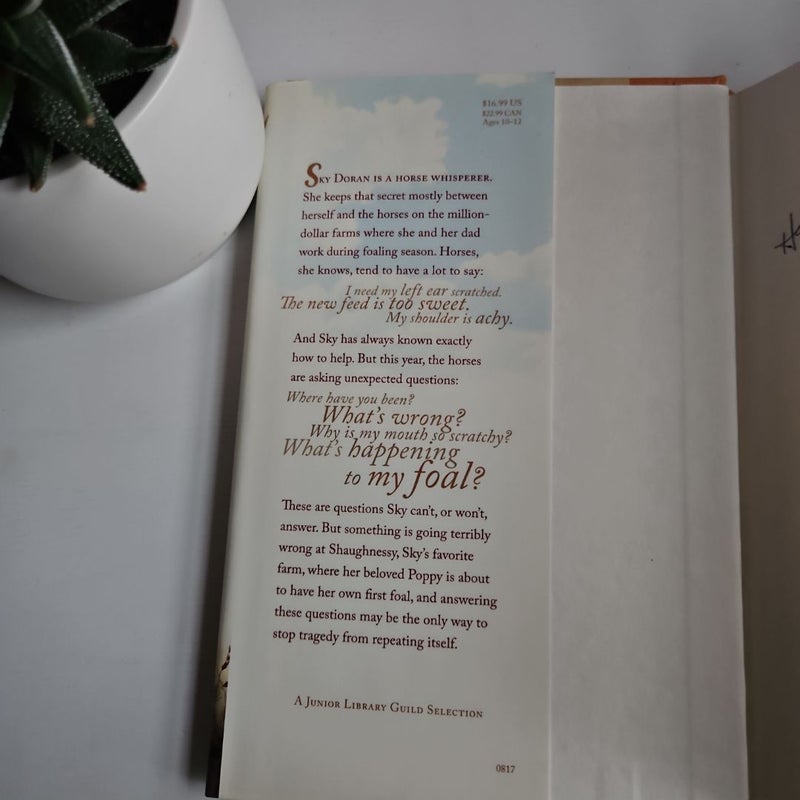 $16.99 US
$22.99 CAN
Ages 10–12
SKY DORAN IS A HORSE WHISPERER.
She keeps that secret mostly between
herself and the horses on the million-
dollar farms where she and her dad
work during foaling season. Horses,
she knows, tend to have a lot to say:
I need my left ear scratched.
The new feed is too sweet.
My shoulder is achy.
And Sky has always known exactly
how to help. But this year, the horses
are asking unexpected questions:
Where have you been?
What's wrong?
Why is my mouth so scratchy?
What's happening
to my foal?
These are questions Sky can't, or won't,
answer. But something is going terribly
wrong at Shaughnessy, Sky's favorite
farm, where her beloved Poppy is about
to have her own first foal, and answering
these questions may be the only way to
stop tragedy from repeating itself.
A JUNIOR LIBRARY GUILD SELECTION
0817